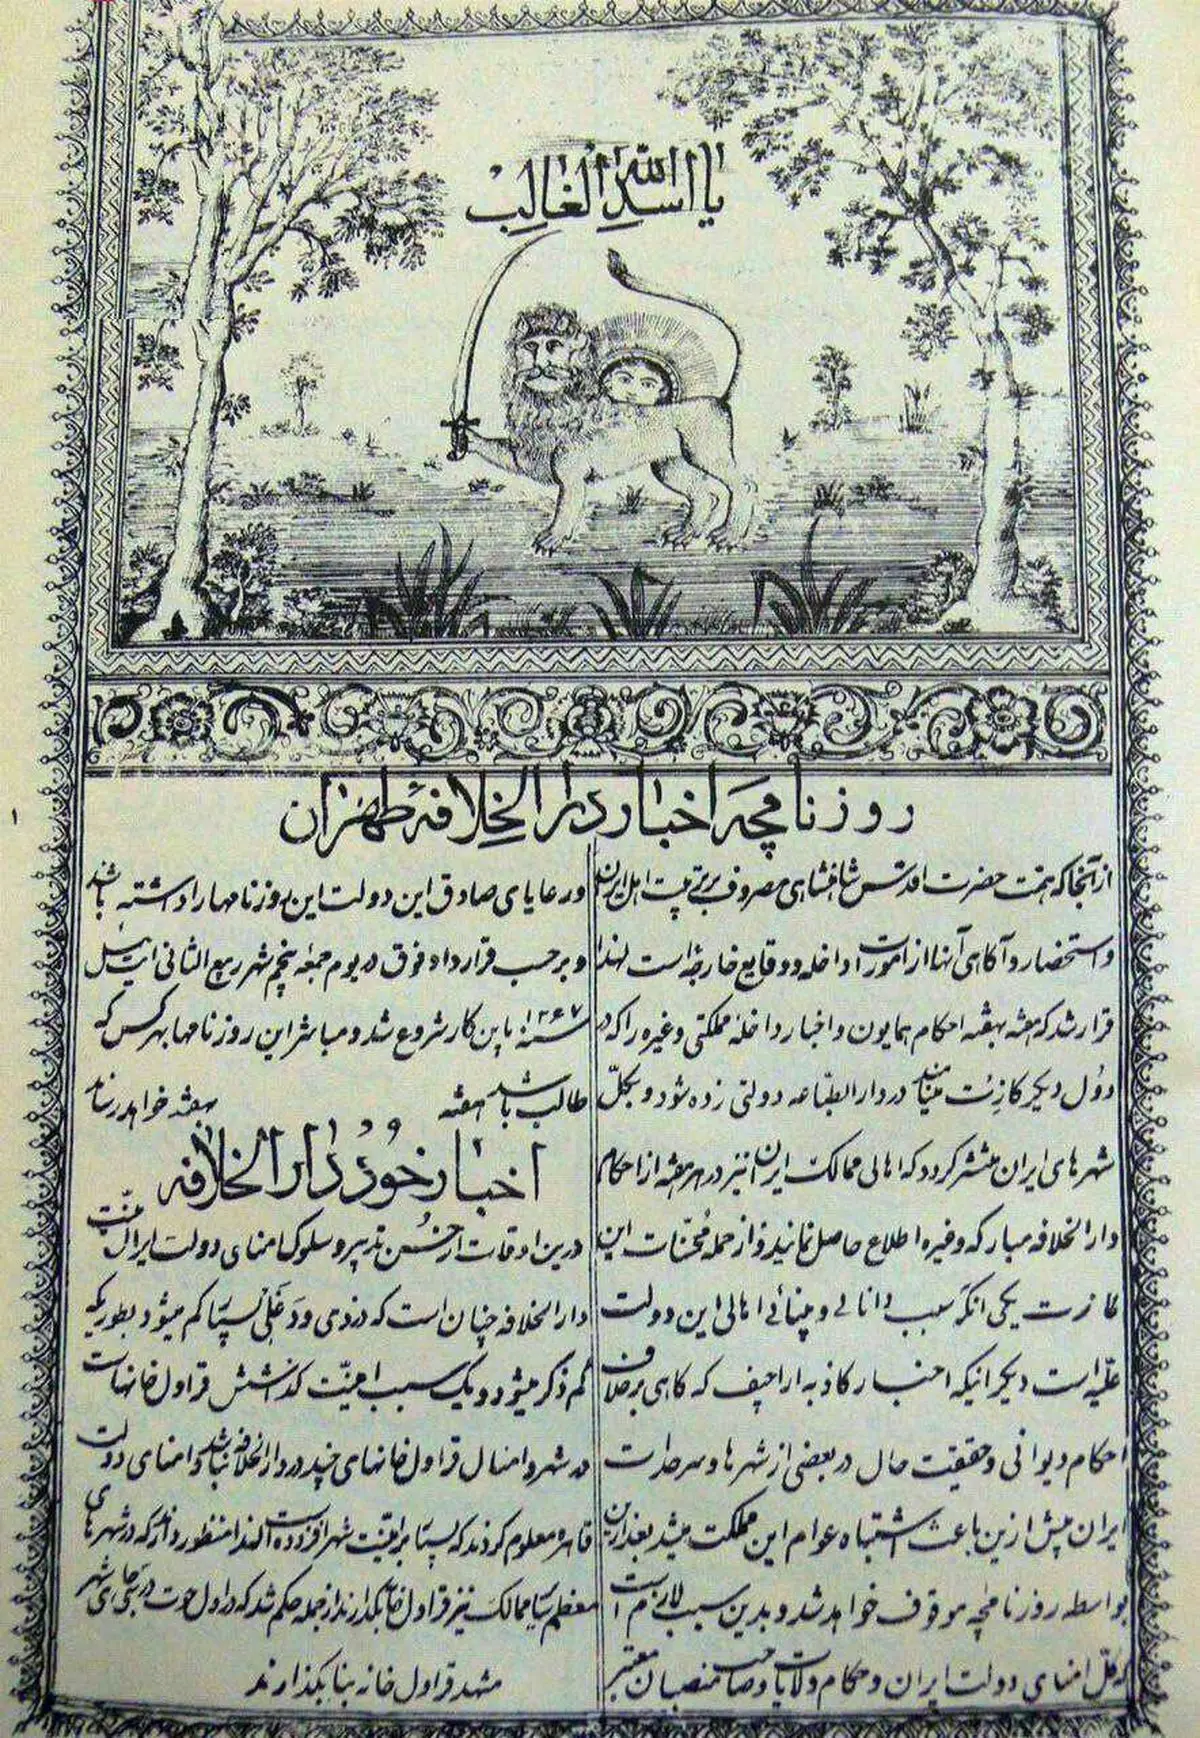 یا اسد الله الغالب
روزنامچه اخبار دارالخلافه طهران
از آنجا که همت حضرت اقدس شاهنشاهی مصروف بر تربیت اهل ایران
و استحضار و آکاهی آنها از امورات داخله و وقایع خارجه است لهذا
قرار شد که هفته بهفته احکام همایون و اخبار داخلهٔ مملکتی و غیره را که در
دول دیکر کازت مینامند در دارالطباعه دولتی زده شود و بکلّ
شهرهای ایران منتشر کردد که اهالی ممالک ایران نیز در هر هفته از احکام
دارالخلافه مبارکه و غیره اطلاع حاصل نمایند و از جمله محسّنات این
کازت یکی آنکه سبب دانائی و بینائی اهالی این دولت
علیّه است دیکر اینکه اخبار کاذبه اراجیف که کاهی برخلاف
احکام دیوانی و حقیقت حال در بعضی از شهرها و سرحدات
ایران پیش ازین باعث اشتباه عوام این مملکت میشد بعد ازین
بواسطه روزنامچه موقوف خواهد شد و بدین سبب لازم است
که کلّ امنای دولت ایران و حکام ولایات و صاحب منصبان معتبر
و رعایای صادق این دولت این روزنامها را داشته باشند
و برحسب قرارداد فوق در یوم جمعه پنجم شهر ربیع الثانی ئیل
سنه ۱۲۶۷ باین کار شروع شد و مباشر این روزنامها بهر کس که
طالب باشد هفته بهفته خواهد رساند
اخبار خود دارالخلافه
درین اوقات از حسن تدبیر و سلوک امنای دولت ایران امنیّت
دارالخلافه چنان است که دزدی و دغلی بسیار کم میشود بطوریکه
کم ذکر میشود و یک سبب امنیّت کذاشتن قراول خانهاست
در شهر و امثال قراول خانهای جدید در دارالخلافه بنا شد و امنای دولت
قاهره معلوم کردند که بسیار بر امنیّت شهر افزوده است لهذا منظور دارند که در شهرهای
معظم سایر ممالک نیز قراول خانه بکذارند از جمله حکم شد که در اول حوت در جای شهر
مشهد قراول خانه بنا بکذارند